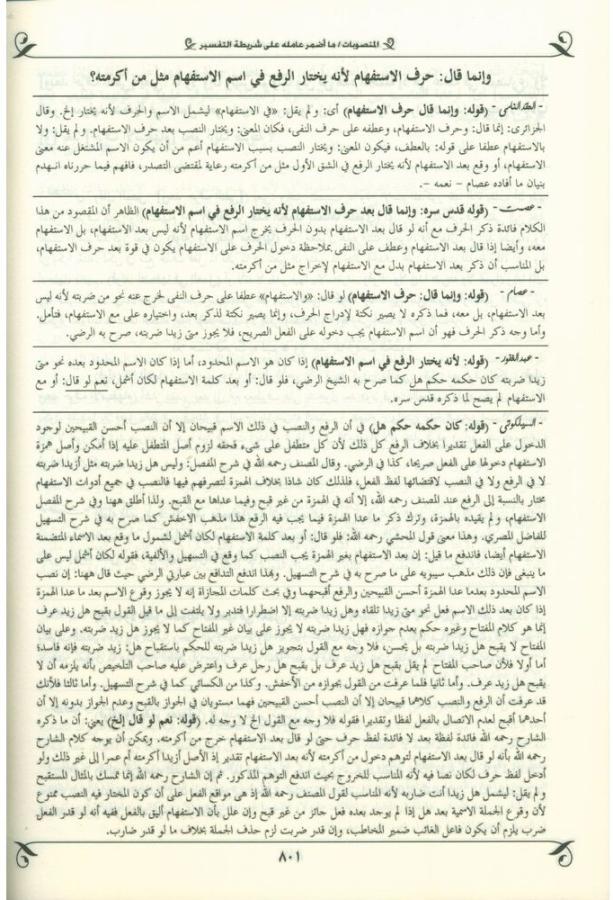 المنصوبات/ما أضمر عامله على شريطة التفسير
وإنما قال: حرف الاستفهام لأنه يختار الرفع في اسم الاستفهام مثل من أكرمته؟
(قوله: وإنما قال حرف الاستفهام) أى: ولم يقل: «في الاستفهام» ليشمل الاسم والحرف لأنه يختار إلخ. وقال
الجزائرى: إنما قال: وحرف الاستفهام، وعطفه على حرف النفى، فكان المعنى: ويختار النصب بعد حرف الاستفهام. ولم يقل: ولا
بالاستفهام عطفا على قوله: بالعطف، فيكون المعنى: ويختار النصب بسبب الاستفهام أعم من أن يكون الاسم المشتغل عنه معنى
الاستفهام، أو وقع بعد الاستفهام لأنه يختار الرفع في الشق الأول مثل من أكرمته رعاية لمقتضى التصدر، فافهم فيما حررناه انهدم
بنيان ما أفاده عصام – نعمه –.
- عصمت - (قوله قدس سره: وإنما قال بعد حرف الاستفهام لأنه يختار الرفع في اسم الاستفهام) الظاهر أن المقصود من هذا
الكلام فائدة ذكر الحرف مع أنه لو قال بعد الاستفهام بدون الحرف يخرج اسم الاستفهام لأنه ليس بعد الاستفهام، بل الاستفهام
معه، وأيضا إذا قال بعد الاستفهام وعطف على النفى بملاحظة دخول الحرف على الاستفهام يكون في قوة بعد حرف الاستفهام،
بل المناسب أن ذكر بعد الاستفهام بدل مع الاستفهام لإخراج مثل من أكرمته.
- عصام - (قوله: وإنما قال: حرف الاستفهام) لو قال: «والاستفهام» عطفا على حرف النفى لخرج عنه نحو من ضربته لأنه ليس
بعد الاستفهام، بل معه، فما ذكره لا يصير نكتة لإدراج الحرف، وإنما يصير نكتة لذكر بعد، واختياره على مع الاستفهام، فتأمل.
وأما وجه ذكر الحرف فهو أن اسم الاستفهام يجب دخوله على الفعل الصريح، فلا يجوز متى زيدا ضربته، صرح به الرضي.
- عبد الغفور - (قوله: لأنه يختار الرفع في اسم الاستفهام) إذا كان هو الاسم المحدود، أما إذا كان الاسم المحدود بعده نحو متى
زيدا ضربته كان حكمه حكم هل كما صرح به الشيخ الرضي، فلو قال: أو بعد كلمة الاستفهام لكان أشمل، نعم لو قال: أو مع
الاستفهام لم يصح لما ذكره قدس سره.
- السيالكوتي - (قوله: كان حكمه حكم هل) في أن الرفع والنصب في ذلك الاسم قبيحان إلا أن النصب أحسن القبيحين لوجود
الدخول على الفعل تقديرا بخلاف الرفع كل ذلك لأن كل متطفل على شىء فحقه لزوم أصل المتطفل عليه إذا أمكن وأصل همزة
الاستفهام دخولها على الفعل صريحا، كذا في الرضي. وقال المصنف رحمه الله في شرح المفصل: وليس هل زيدا ضربته مثل أزيدا ضربته
لا في الرفع ولا في النصب لاقتضائها لفظ الفعل، فلذلك كان شاذا بخلاف الهمزة لتصرفهم فيها فالنصب في جميع أدوات الاستفهام
مختار بالنسبة إلى الرفع عند المصنف رحمه الله، إلا أنه في الهمزة من غير قبح وفيما عداها مع القبح. ولذا أطلق ههنا وفي شرح المفصل
الاستفهام، ولم يقيده بالهمزة، وترك ذكر ما عدا الهمزة فيما يجب فيه الرفع هذا مذهب الاخفش كما صرح به في شرح التسهيل
للفاضل المصري. وهذا معنى قول المحشي رحمه الله: فلو قال: أو بعد كلمة الاستفهام لكان أشمل لشمول ما وقع بعد الاسماء المتضمنة
الاستفهام أيضا، فاندفع ما قيل: إن بعد الاستفهام بغير الهمزة يجب النصب كما وقع في التسهيل والألفية، فقوله لكان أشمل ليس على
ما ينبغى فإن ذلك مذهب سيبويه على ما صرح به في شرح التسهيل. وبهذا اندفع التدافع بين عبارتي الرضي حيث قال ههنا: إن نصب
الاسم المحدود بعدما عدا الهمزة أحسن القبيحين والرفع أقبحهما وفي بحث كلمات المجازاة إنه لا يجوز وقوع الاسم بعد ما عدا الهمزة
إذا كان بعد ذلك الاسم فعل نحو متى زيدا تلقاه وهل زيدا ضربته إلا اضطرارا فتدبر ولا يلتفت إلى ما قيل القول بقبح هل زيد عرف
إنما هو كلام المفتاح وغيره حكم بعدم جوازه فهل زيدا ضربته لا يجوز على بيان غير المفتاح كما لا يجوز هل زيد ضربته. وعلى بيان
المفتاح لا يقبح هل زيدا ضربته بل يحسن، فلا وجه مع القول بتجويز هل زيدا ضربته للحكم باستقباح هل: زيد ضربته فإنه فاسد؛
أما أولا فلأن صاحب المفتاح لم يقل بقبح هل زيد عرف بل بقبح هل رجل عرف واعترض عليه صاحب التلخيص بأنه يلزمه أن لا
يقبح هل زيد عرف. وأما ثانيا فلما عرفت من القول بجوازه من الأخفش. وكذا من الكسائي كما في شرح التسهيل. وأما ثالثا فلأنك
قد عرفت أن الرفع والنصب كلاهما قبيحان إلا أن النصب أحسن القبيحين فهما مستويان في الجواز بالقبح وعدم الجواز بدونه إلا أن
أحدهما أقبح لعدم الاتصال بالفعل لفظا وتقديرا فقوله فلا وجه مع القول الخ لا وجه له. (قوله: نعم لو قال إلخ) يعني: أن ما ذكره
الشارح رحمه الله فائدة لفظة بعد لا فائدة لفظ حرف حتى لو قال بعد الاستفهام خرج من أكرمته. ويمكن أن يوجه كلام الشارح
رحمه الله بأنه لو قال بعد الاستفهام لتوهم دخول من أكرمته لأنه بعد الاستفهام تقدير إذ الأصل أزيدا أكرمته أم عمرا إلى غير ذلك ولو
أدخل لفظ حرف لكان نصا فيه لأنه المناسب للخروج بحيث اندفع التوهم المذكور. ثم إن الشارح رحمه الله إنما تمسك بالمثال المستقبح
ولم يقل: ليشمل هل زيدا أنت ضاربه لأنه المناسب لقول المصنف رحمه الله إذ هي مواقع الفعل على أن كون المختار فيه النصب ممنوع
لأن وقوع الجملة الاسمية بعد هل إذا لم يوجد بعده فعل جائز من غير قبح وإن علل بأن الاستفهام أليق بالفعل ففيه أنه لو قدر الفعل
ضرب يلزم أن يكون فاعل الغائب ضمير المخاطب، وإن قدر ضربت لزم حذف الجملة بخلاف ما لو قدر ضارب.
٨٠١